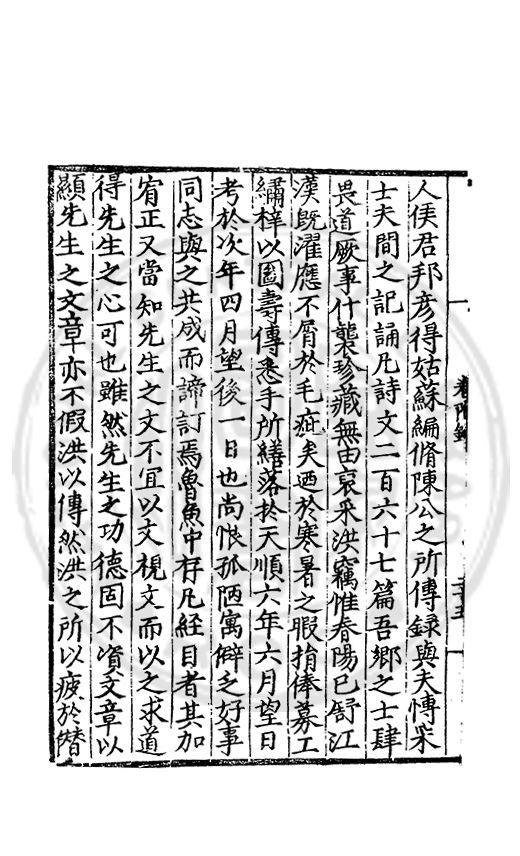 人侯君邦彥得姑蘇編脩陳公之所傳錄與夫愽采
士夫間之記誦凡詩文二百六十七篇吾鄉之士肆
畏道厥事什襲珍藏無由裒采洪竊惟春陽已舒江
漢既濯應不屑於毛疵矣迺於寒暑之暇捐俸募工
繡梓以圖壽傳悉手所繕落於天順六年六月望日
考於次年四月望後一日也尚恨孤陋寓僻乏好事
同志與之共成而諦訂焉魯魚中存凡經目者其加
宥正又當知先生之文不宜以文視文而以之求道
得先生之心可也雖然先生之功德固不資文章以
顯先生之文章亦不假洪以傳然洪之所以疲於
卷附錄
二十五